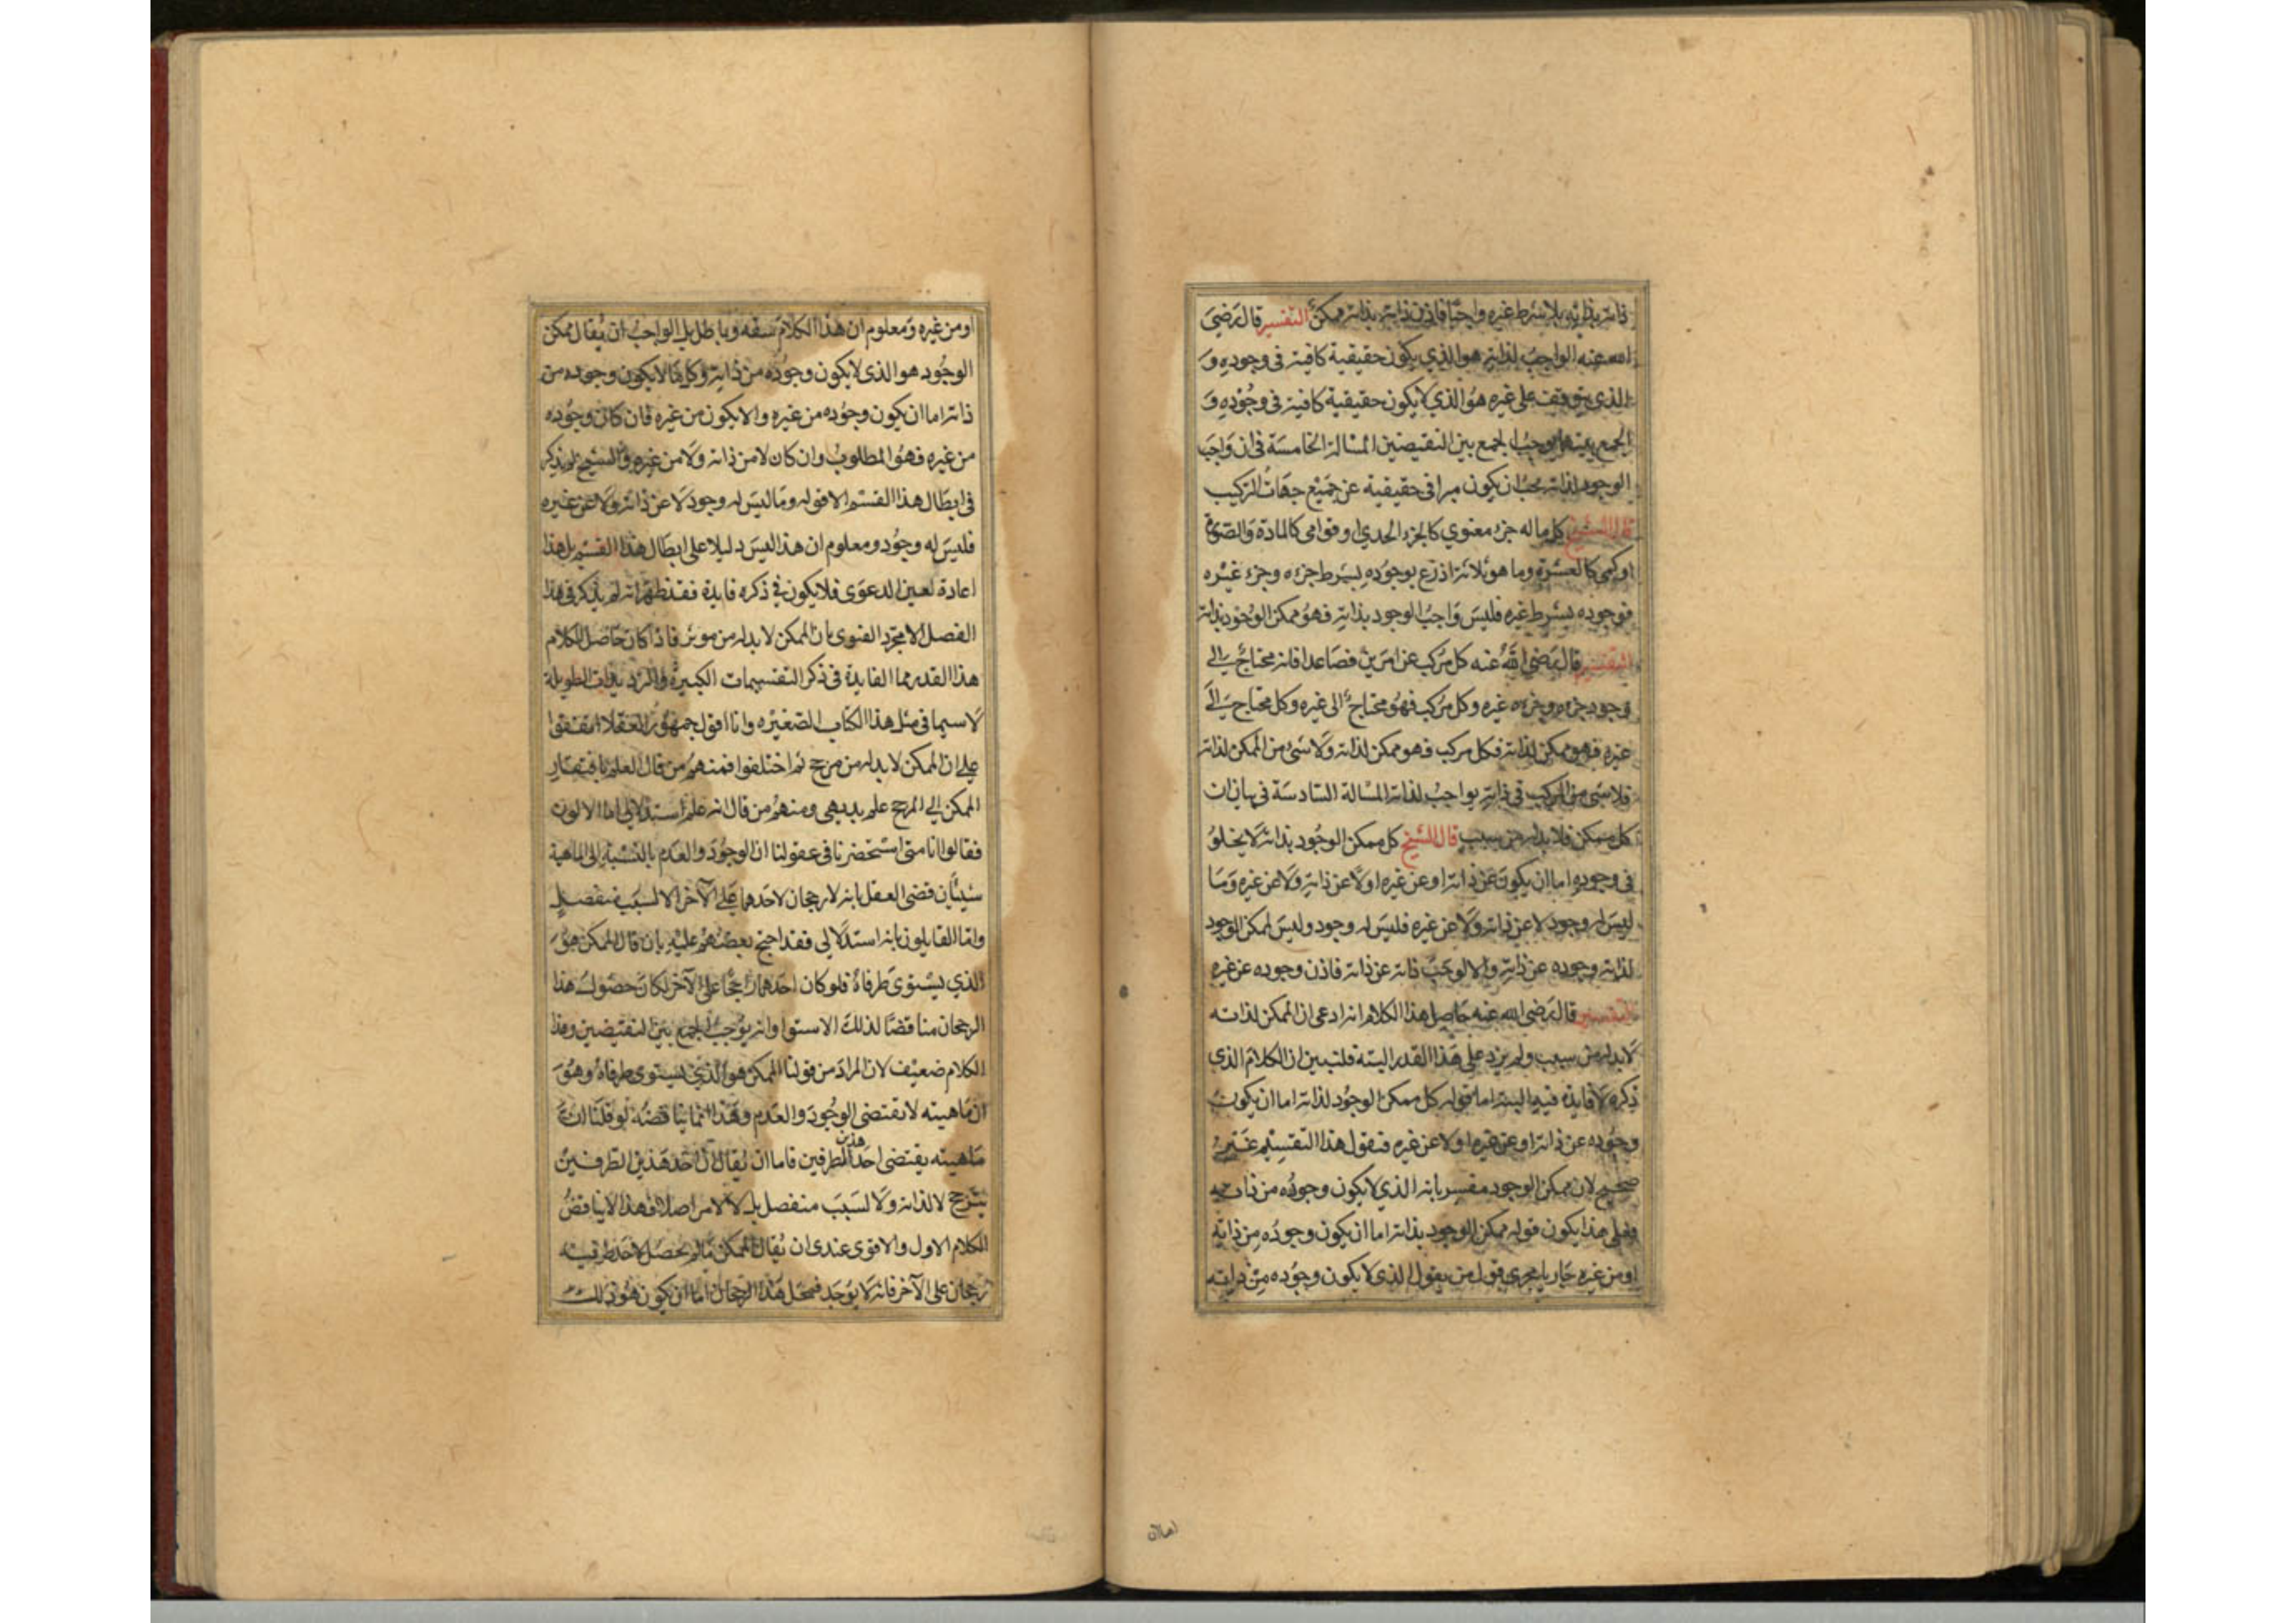 ذاته بذاته بلا شرط غيره واجبا فاذن ذاته بذاته ممكن التفسير قال رضي
الله عنه الواجب لذاته هو الذي يكون حقيقية كافية فى وجوده و
الذي يتوقف على غيره هو الذي لا يكون حقيقية كافية فى وجوده و
الجمع بينهما يوجب الجمع بين النقيضين المسالة الخامسة فى ان واجب
الوجود لذاته يجب ان يكون مبرا فى حقيقية عن جميع جهات التركيب
قال الشيخ كل ما له جزء معنوي كالجزء الحدي او قوامى كالمادة والصورة
اوكمى كالعشرة وما هو ثلاثة اذرع بوجوده بشرط جزءه وجزء غيره
فوجوده بشرط غيره فليس واجب الوجود بذاته فهو ممكن الوجود بذاته
التفسير قال رضى الله عنه كل مركب عن امرين فصاعدا فانه محتاج الى
وجود جزءه وجزءه غيره وكل مركب فهو محتاج الى غيره وكل محتاج الى
غيره فهو ممكن لذاته فكل مركب فهو ممكن لذاته ولا شىء من الممكن لذاته
فلا شى من المركب فى ذاته بواجب لذاته المسالة السادسة فى بيان ان
كل ممكن فلا بد له من سبب قال الشيخ كل ممكن الوجود بذاته لا يخلو
فى وجوده اما ان يكون عن ذاته او عن غيره او لا عن ذاته ولا عن غيره وما
ليس له وجود لا عن ذاته ولا عن غيره فليس له وجود وليس لممكن الوجود
لذاته وجوده عن ذاته والا لوجب ذاته عن ذاته فاذن وجوده عن غيره
التفسير قال رضى الله عنه حاصل هذا الكلام انه ادعى ان الممكن لذاته
لا بد له من سبب ولم يزد على هذا القدر البتة فلنبين ان الكلام الذى
ذكره لا فايدة فيه البتة اما قوله كل ممكن الوجود لذاته اما ان يكون
وجوده عن ذاته او عن غيره او لا عن غيره فنقول هذا التقسيم غير
صحيح لان ممكن الوجود مفسر بانه الذي لا يكون وجوده من ذاته
وعلى هذا يكون قوله ممكن الوجود بذاته اما ان يكون وجوده من ذاته
او من غيره جاريا مجرى قول من يقول الذى لا يكون وجوده من ذاته
او من غيره ومعلوم ان هذا الكلام سفه وباطل بل الواجب ان يقال ممكن
الوجود هو الذى لا يكون وجوده من ذاته وكل ما لا يكون وجوده من
ذاته اما ان يكون وجوده من غيره والا يكون من غيره فان كان وجوده
من غيره فهو المطلوب وان كان لا من ذاته ولا من غيره والشيخ لم يذكر
فى ابطال هذا القسم الا قوله وما ليس له وجود لا عن ذاته ولا عن غيره
فليس له وجود ومعلوم ان هذا ليس دليلا على ابطال هذا القسم بل هذا
اعادة لعين الدعوى فلا يكون فى ذكره فايدة فقد ظهر انه لم يذكر فى هذا
الفصل الا مجرد الفتوى بان الممكن لا بد له من موثر فاذا كان حاصل الكلام
هذا القدر فما الفايدة فى ذكر التقسيمات الكبيرة والترديدات الطويلة
لا سيما فى مثل هذا الكتاب الصغيره وانا اقول جمهور العقلا اتفقوا
على ان الممكن لا بد له من مرجح ثم اختلفوا فمنهم من قال العلم بافتقار
الممكن الى المرجح علم بديهى ومنهم من قال انه علم استدلالى اما الاولون
فقالوا انا متى استحضرنا فى عقولنا ان الوجود والعدم بالنسبة الى الماهية
سيئان قضى العقل بانه لا رجحان لاحدهما على الآخر الا لسبب منفصل
واما القايلون بانه استدلالى فقد احتج بعضهم عليه بان قال الممكن هو
الذي يستوى طرفاه فلو كان احدهما راجحا على الآخر لكان حصول هذا
الرجحان مناقضا لذلك الاستوا وانه يوجب الجمع بين النقيضين وهذا
الكلام ضعيف لان المراد من قولنا الممكن هو الذي يستوى طرفاه وهو
ان ماهيته لا تقتضى الوجود والعدم وهذا انما يناقضه لو قلنا ان
ماهيته يقتضى احد هذين الطرفين فاما ان يقال ان احد هذين الطرفين
يترجح لا لذاته ولا لسبب منفصل بل لا لامر اصلا فهذا لا يناقض
الكلام الاول والاقوى عندى ان يقال الممكن ما لم يحصل لاحد طرفيه
رجحان على الآخر فانه لا يوجد فمحل هذا الرجحان اما ان يكون هو ذلك